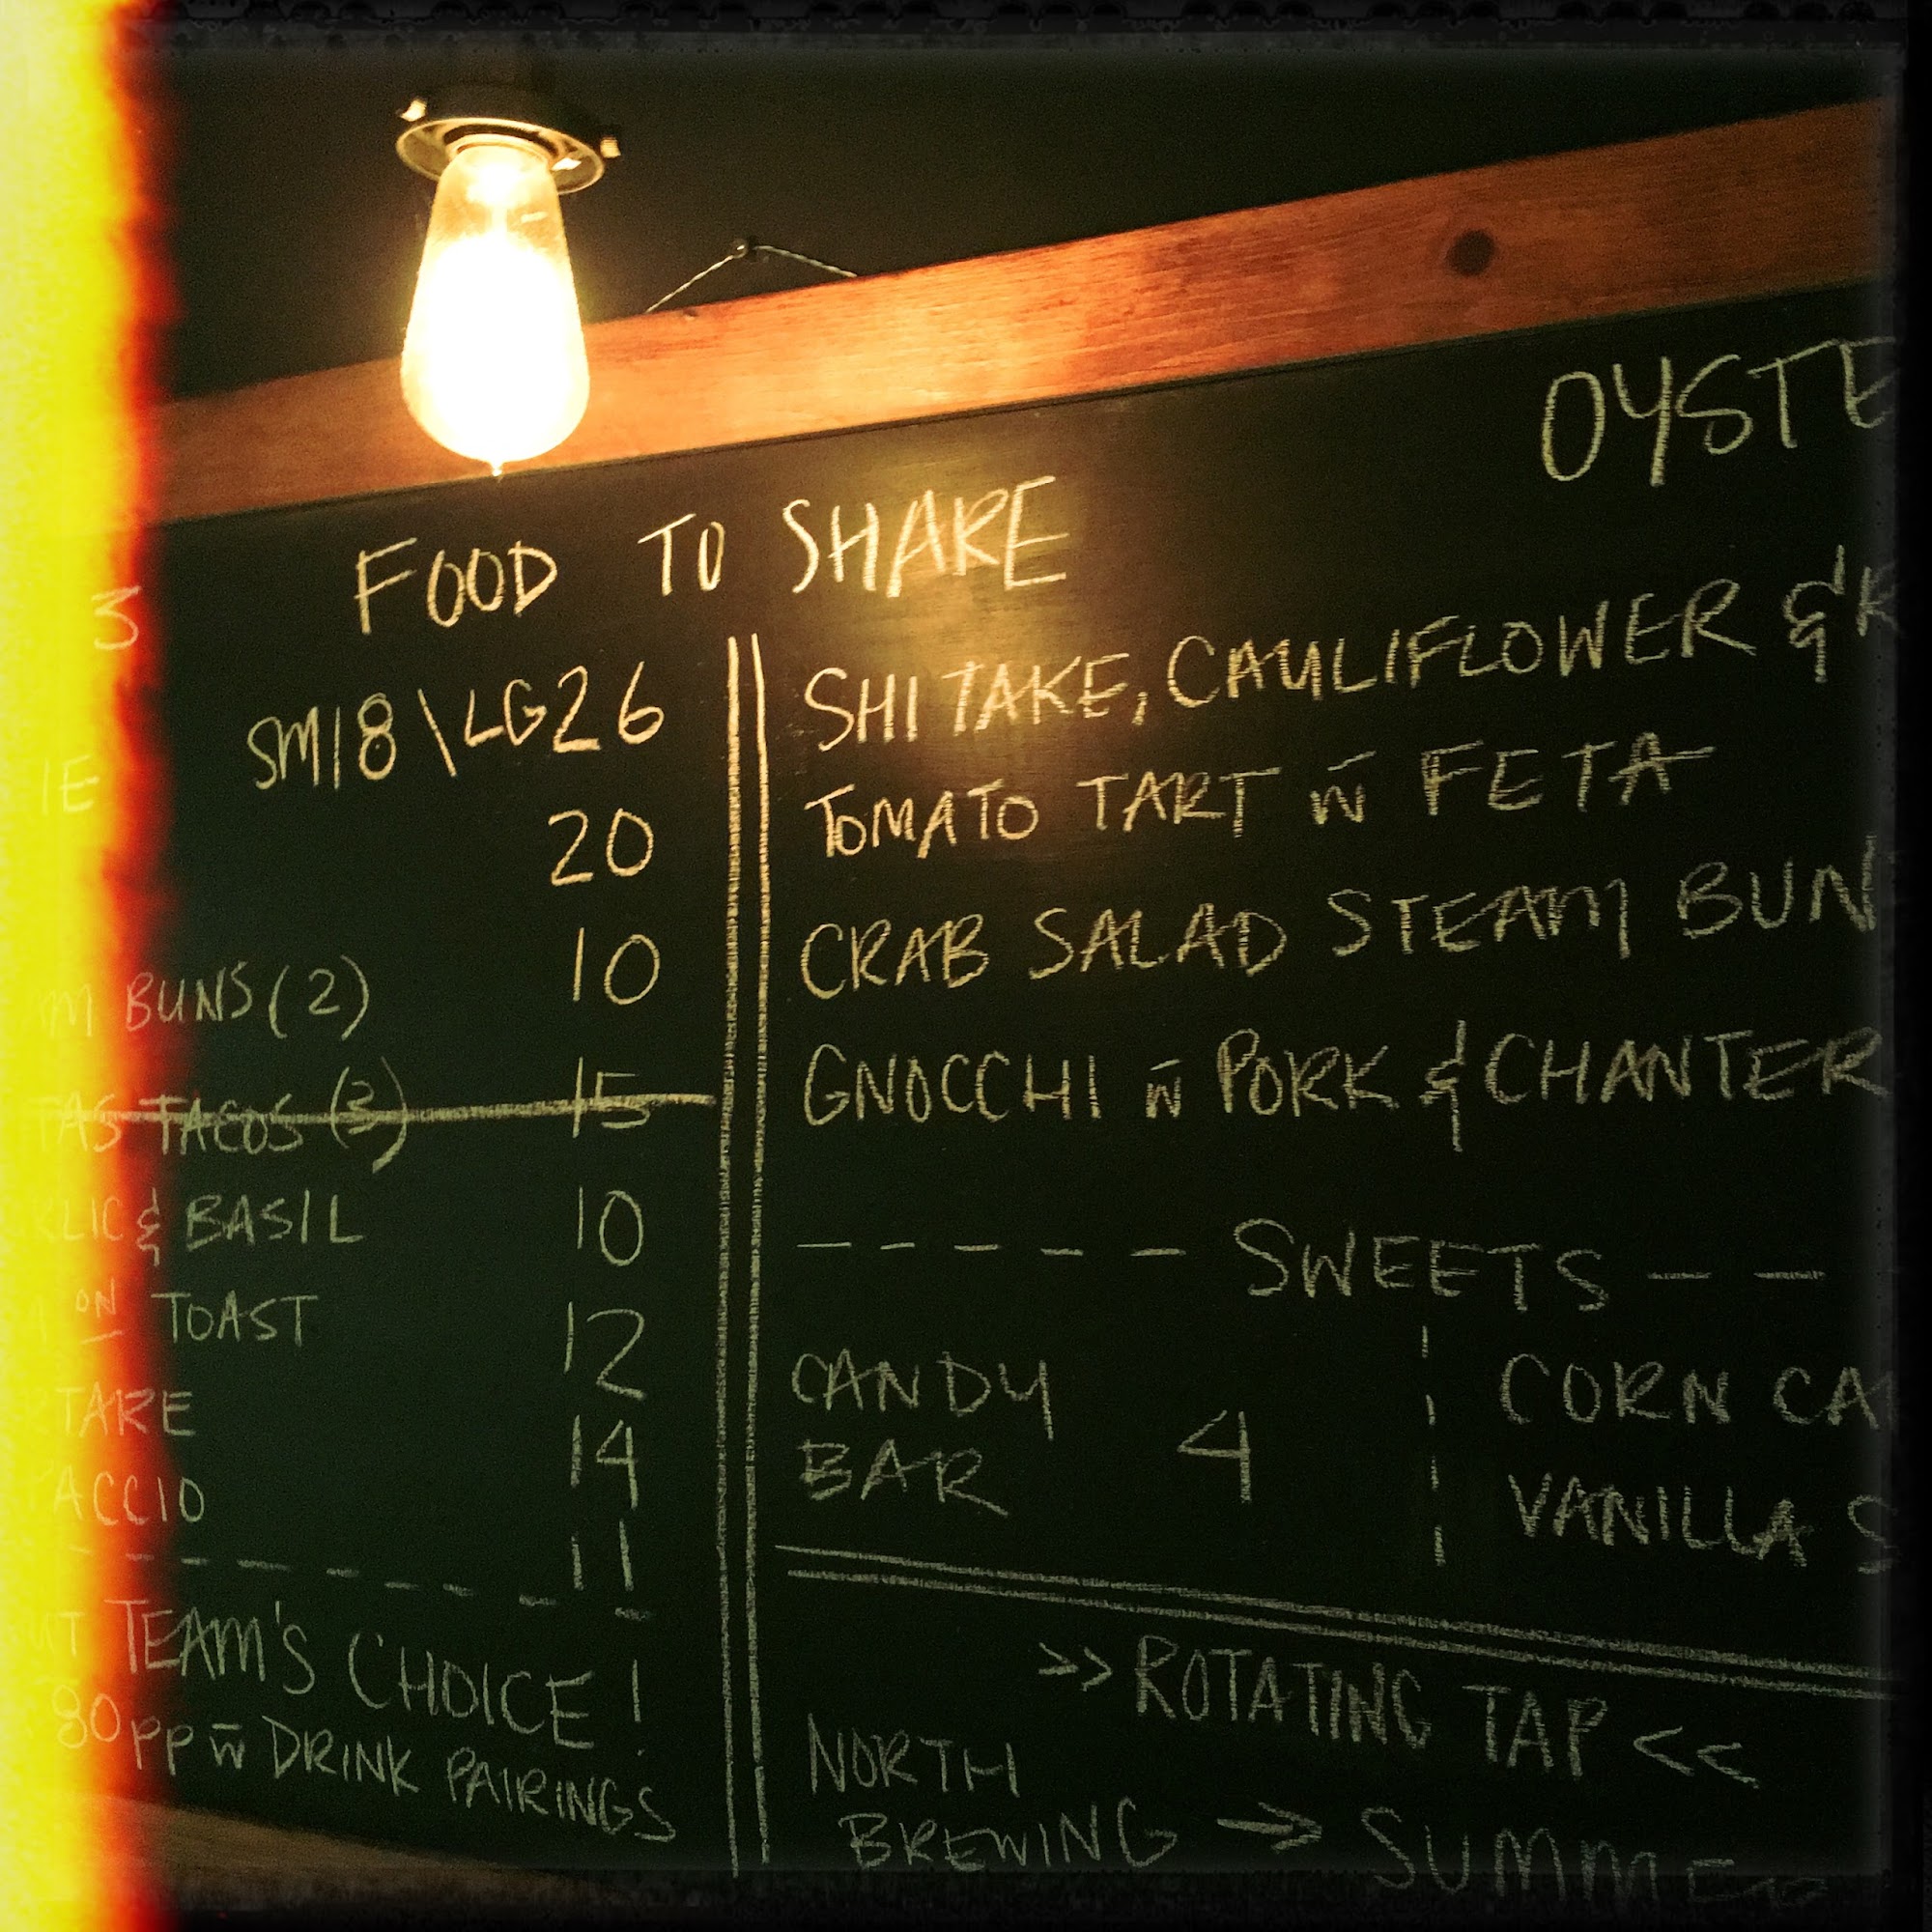 OYSTE
FOOD TO SHARE
3
SM18\LG26
IE
20
M BUNS (2) 10
TAS TACOS (3) 15
LIC & BASIL 10
ON TOAST 12
TARE 14
ACCIO 11
TEAM'S CHOICE!
80pp w̄ DRINK PAIRINGS
SHITAKE, CAULIFLOWER &
TOMATO TART w̄ FETA
CRAB SALAD STEAM BUN
GNOCCHI w̄ PORK & CHANTER
----- SWEETS --
CANDY
BAR 4
CORN CA
VANILLA S
>> ROTATING TAP <<
NORTH
BREWING → SUMME